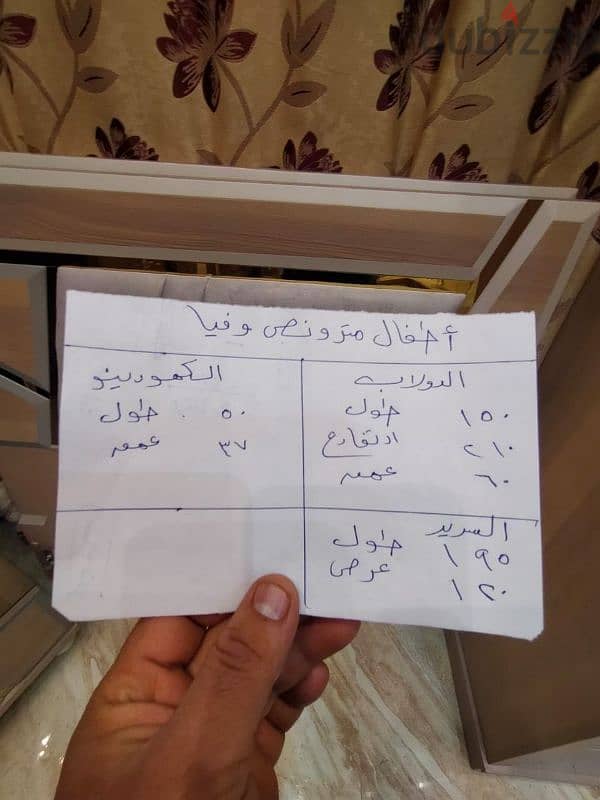 dubizzle
أطفال متر ونص وفيا
الدولاب
١٥٠ طول
٢١٠ ارتفاع
٦٠ عمق
الكمودينو
٥٠ طول
٣٧ عمق
السرير
١٩٥ طول
١٢٠ عرض